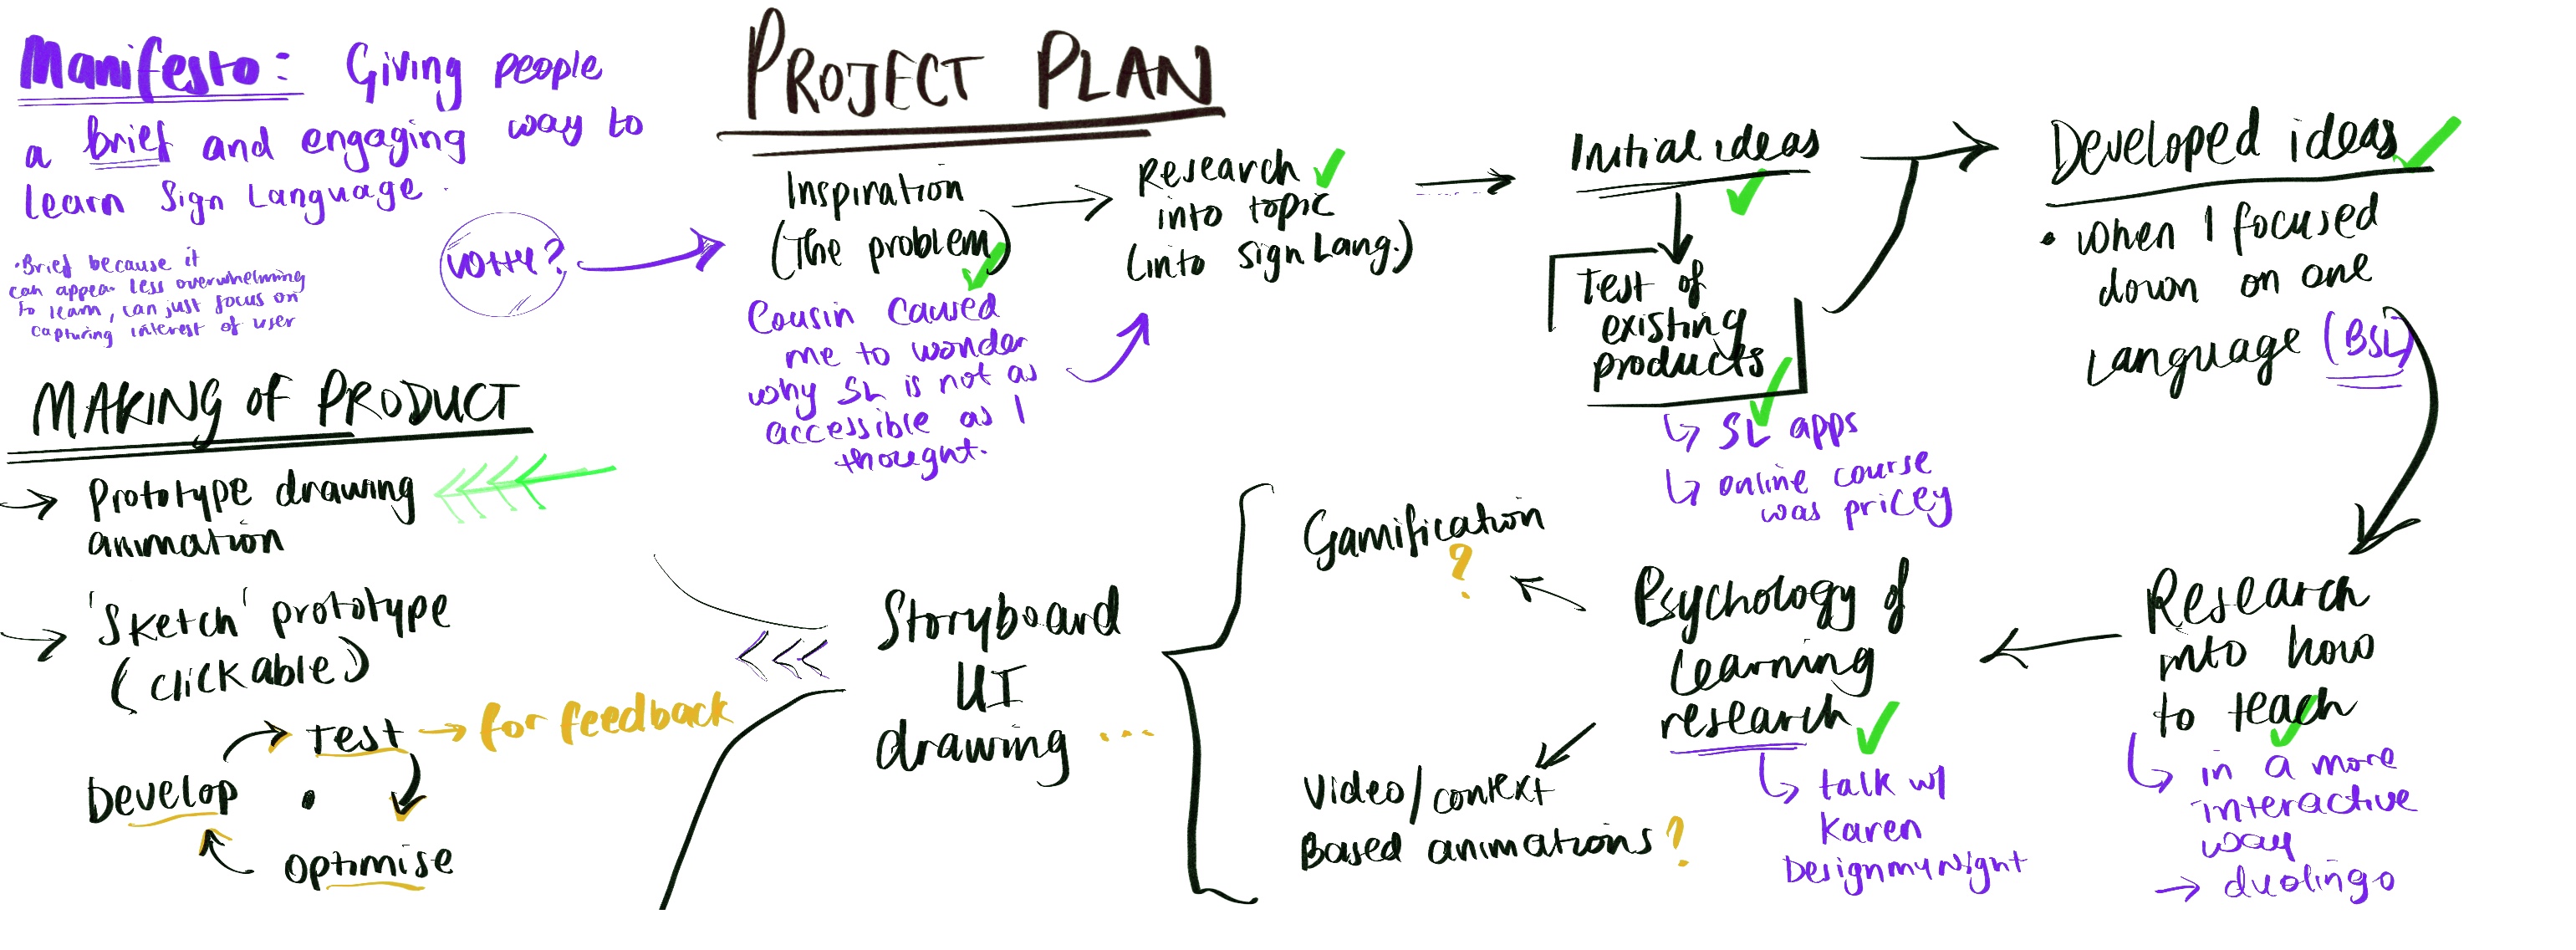 Manifesto: Giving people
a brief and engaging way to
learn Sign Language.
• Brief because it
can appear less overwhelming
to learn, can just focus on
capturing interest of user
PROJECT PLAN
WHY?
Inspiration
(The problem)
Cousin caused
me to wonder
why SL is not as
accessible as I
thought.
Research
into topic
(into sign Lang.)
Initial ideas
Test of
existing
products
↳ SL apps
↳ online course
was pricey
Developed ideas
• When I focused
down on one
Language (BSL)
Research
into how
to teach
↳ in a more
interactive
way
→ duolingo
Psychology of
Learning
research
↳ talk w/
Karen
Designmynight
Gamification
?
Video/context
Based animations?
Storyboard
UI
drawing ...
MAKING OF PRODUCT
→ Prototype drawing
animation
→ 'Sketch' prototype
(clickable)
Test → for feedback
Develop
Optimise